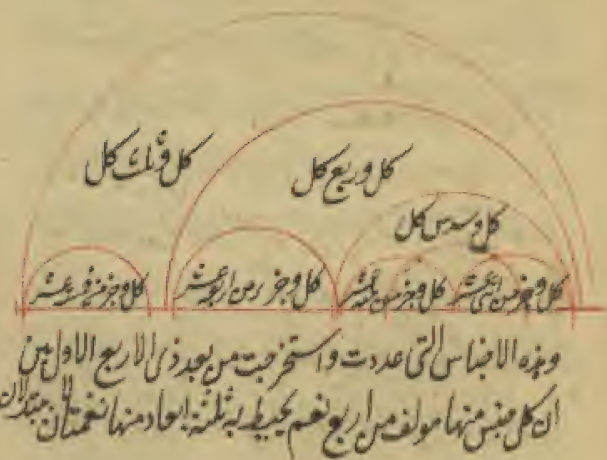 كل وثلث كل
كل وربع كل
كل وسدس كل
كل وجزء من اثنى عشر
كل وجزء من ثلثة عشر
كل وجزء من اربعة عشر
كل وجزء من خمسة عشر
وهذه الاجناس التى عددت واستخرجت من بعد ذى الاربع الاول بين
ان كل جنس منها مولف من اربع نغم يحيط به ثلثة ابعاد منها نغمتان